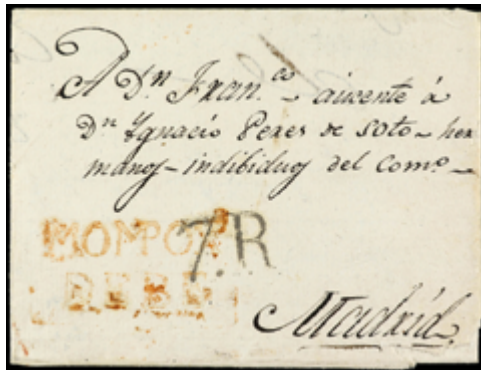 A Dⁿ Franᶜᵒ ausente á
Dⁿ Ygnacio Peres de Soto - her
manos - indibiduos del Comº -
MOMPOX
7.R
DEBE
Madrid